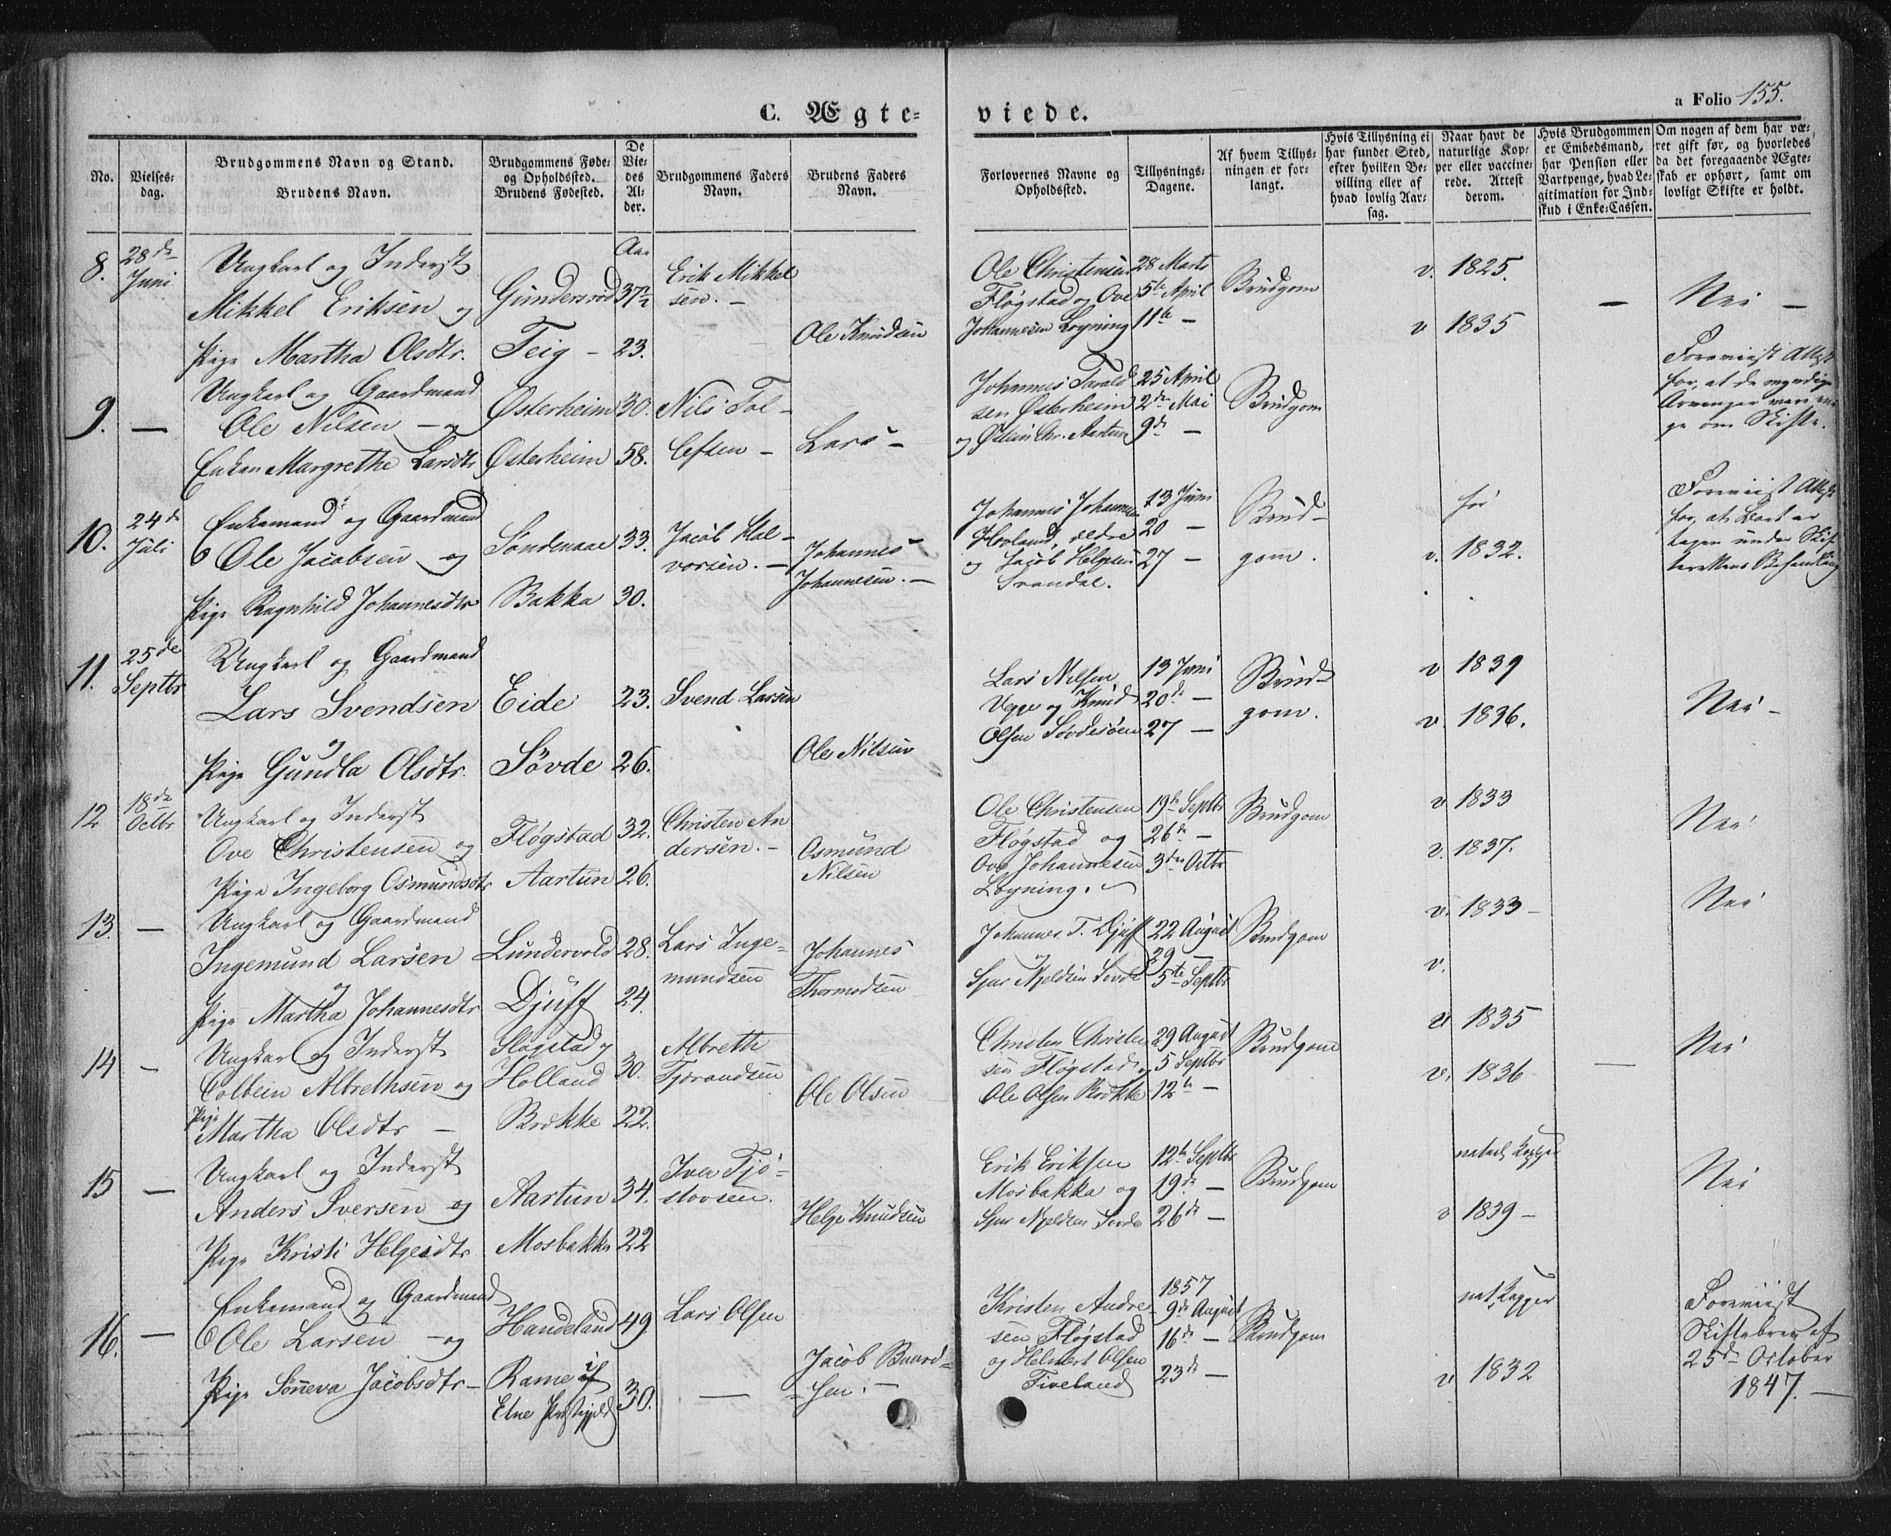 C. Ægte-
viede.
a Folio 155.
No.
Vielses-
dag.
Brudgommens Navn og Stand.
Brudens Navn.
Brudgommens Føde-
og Opholdssted.
Brudens Fødested.
De
Vie-
des
Al-
der.
Brudgommens Faders
Navn.
Brudens Faders
Navn.
Forlovernes Navne og
Opholdssted.
Tillysnings-
Dagene.
Af hvem Tillys-
ningen er for-
langt.
Hvis Tillysning ei
har fundet Sted,
efter hvilken Be-
villing eller af
hvad lovlig Aar-
sag.
Naar havt de
naturlige Kop-
per eller vaccine-
rede. Attest
derom.
Hvis Brudgommen
er Embedsmand,
har Pension eller
Vartpenge, hvad Le-
gitimation for Ind-
skud i Enke-Cassen.
Om nogen af dem har væ-
ret gift før, og hvorledes
da det foregaaende Ægte-
skab er ophørt, samt om
lovligt Skifte er holdt.
8.
28de
Juni
Ungkarl og Inderst
Mikkel Eriksen og
Pige Martha Olsdtr.
Gundersrød
Teig –
Aar
37½
23.
Erik Mikkel
sen. –
Ole Knudsen
Ole Christensen
Fløgstad og Ove
Johannesen Løyning
28 Marts
5te April
11te –
Brudgom
v. 1825.
v 1835
–
Nei –
9.
–
Ungkarl og Gaardmand
Ole Nilsen – og
Enken Margrethe Larsdtr
Østerheim
Østerheim
30.
58.
Nils Tol-
lefsen –
Lars –
Johannes Tarald
sen Østerheim
og Østen Chr. Aartun
25 April
2de Mai
9de –
Brudgom
Foreviist Attest
for, at de myndige
Arvinger vare eni-
ge om Skifte.
10.
24de
Juli
Enkemand og Gaardmand
Ole Jacobsen og
Pige Ragnhild Johannesdtr
Søndenaae
Bakka
33.
30.
Jacob Hal-
vorsen. –
Johannes
Johannesen. –
Johannes Johannesen
Hovland, ældre
og Jacob Helgesen
Svandal.
13 Juni
20 –
27 –
Brud-
gom.
før
v. 1832.
Foreviist Attest
for, at Boet er
tagen under Skif-
terettens Behandling
11.
25de
Septbr
Ungkarl og Gaardmand
Lars Svendsen
og
Pige Gundla Olsdtr.
Eide
Søvde
23.
26.
Svend Larsen
Ole Nilsen
Lars Nilsen
og Knud
Olsen Søvdesøen
13 Juni
20de –
27 –
Brud-
gom.
v 1839
v. 1836.
Nei –
12
18de
Octbr
Ungkarl og Inderst
Ove Christensen og
Pige Ingeborg Osmundsdtr
Fløgstad
Aartun
32.
26.
Christen An
dersen. –
Osmund
Nilsen
Ole Christensen
Fløgstad og
Ove Johannesen
Løyning.
19de Septbr
26de –
3die Octbr
Brudgom
v 1833
v. 1837.
Nei
13.
–
Ungkarl og Gaardmand
Ingemund Larsen
og
Pige Martha Johannesdtr
Lundervold
Djuff
28.
24.
Lars Inge-
mundsen
Johannes
Thormodsen
Johannes T. Djuff
og
22 August
29 –
5te Septbr
Brudgom
v. 1833 –
v.
Nei
14
–
Ungkarl og Inderst
Colbein Albrethsen og
Pige
Martha Olsdtr –
Fløgstad og
Holland
Brække
30.
22.
Albreth
Tjerandsen
Ole Olsen
Christen Christen
sen Fløgstad og
Ole Olsen Brække
29 August
5 Septbr
12te –
Brudgom
v 1835
v. 1836
–
Nei
15
–
Ungkarl og Inderst
Anders Iversen og
Pige Kristi Helgesdtr
Aartun
Mosbakka
34.
22
Iver Tjø-
stovsen.
Helge Knudsen
Erik Eriksen
Mosbakka og
12te Septbr
19de –
26de –
Brudgom
naturl Kopper
v 1839 –
Nei
16.
–
Enkemand og Gaardmand
Ole Larsen – og
Pige Sønneva Jacobsdtr –
Handeland
Rame af
Etne Præstegjeld
49
30.
Lars Olsen
–
Jacob Baard-
sen. –
Kristen Andre
sen Fløgstad
og Helmert Olsen
Fiveland
1857
9de August
16de –
23de –
Brudgom
nat. Kopper
v 1832
Foreviist
Skiftebrev af
25de October
1847. –